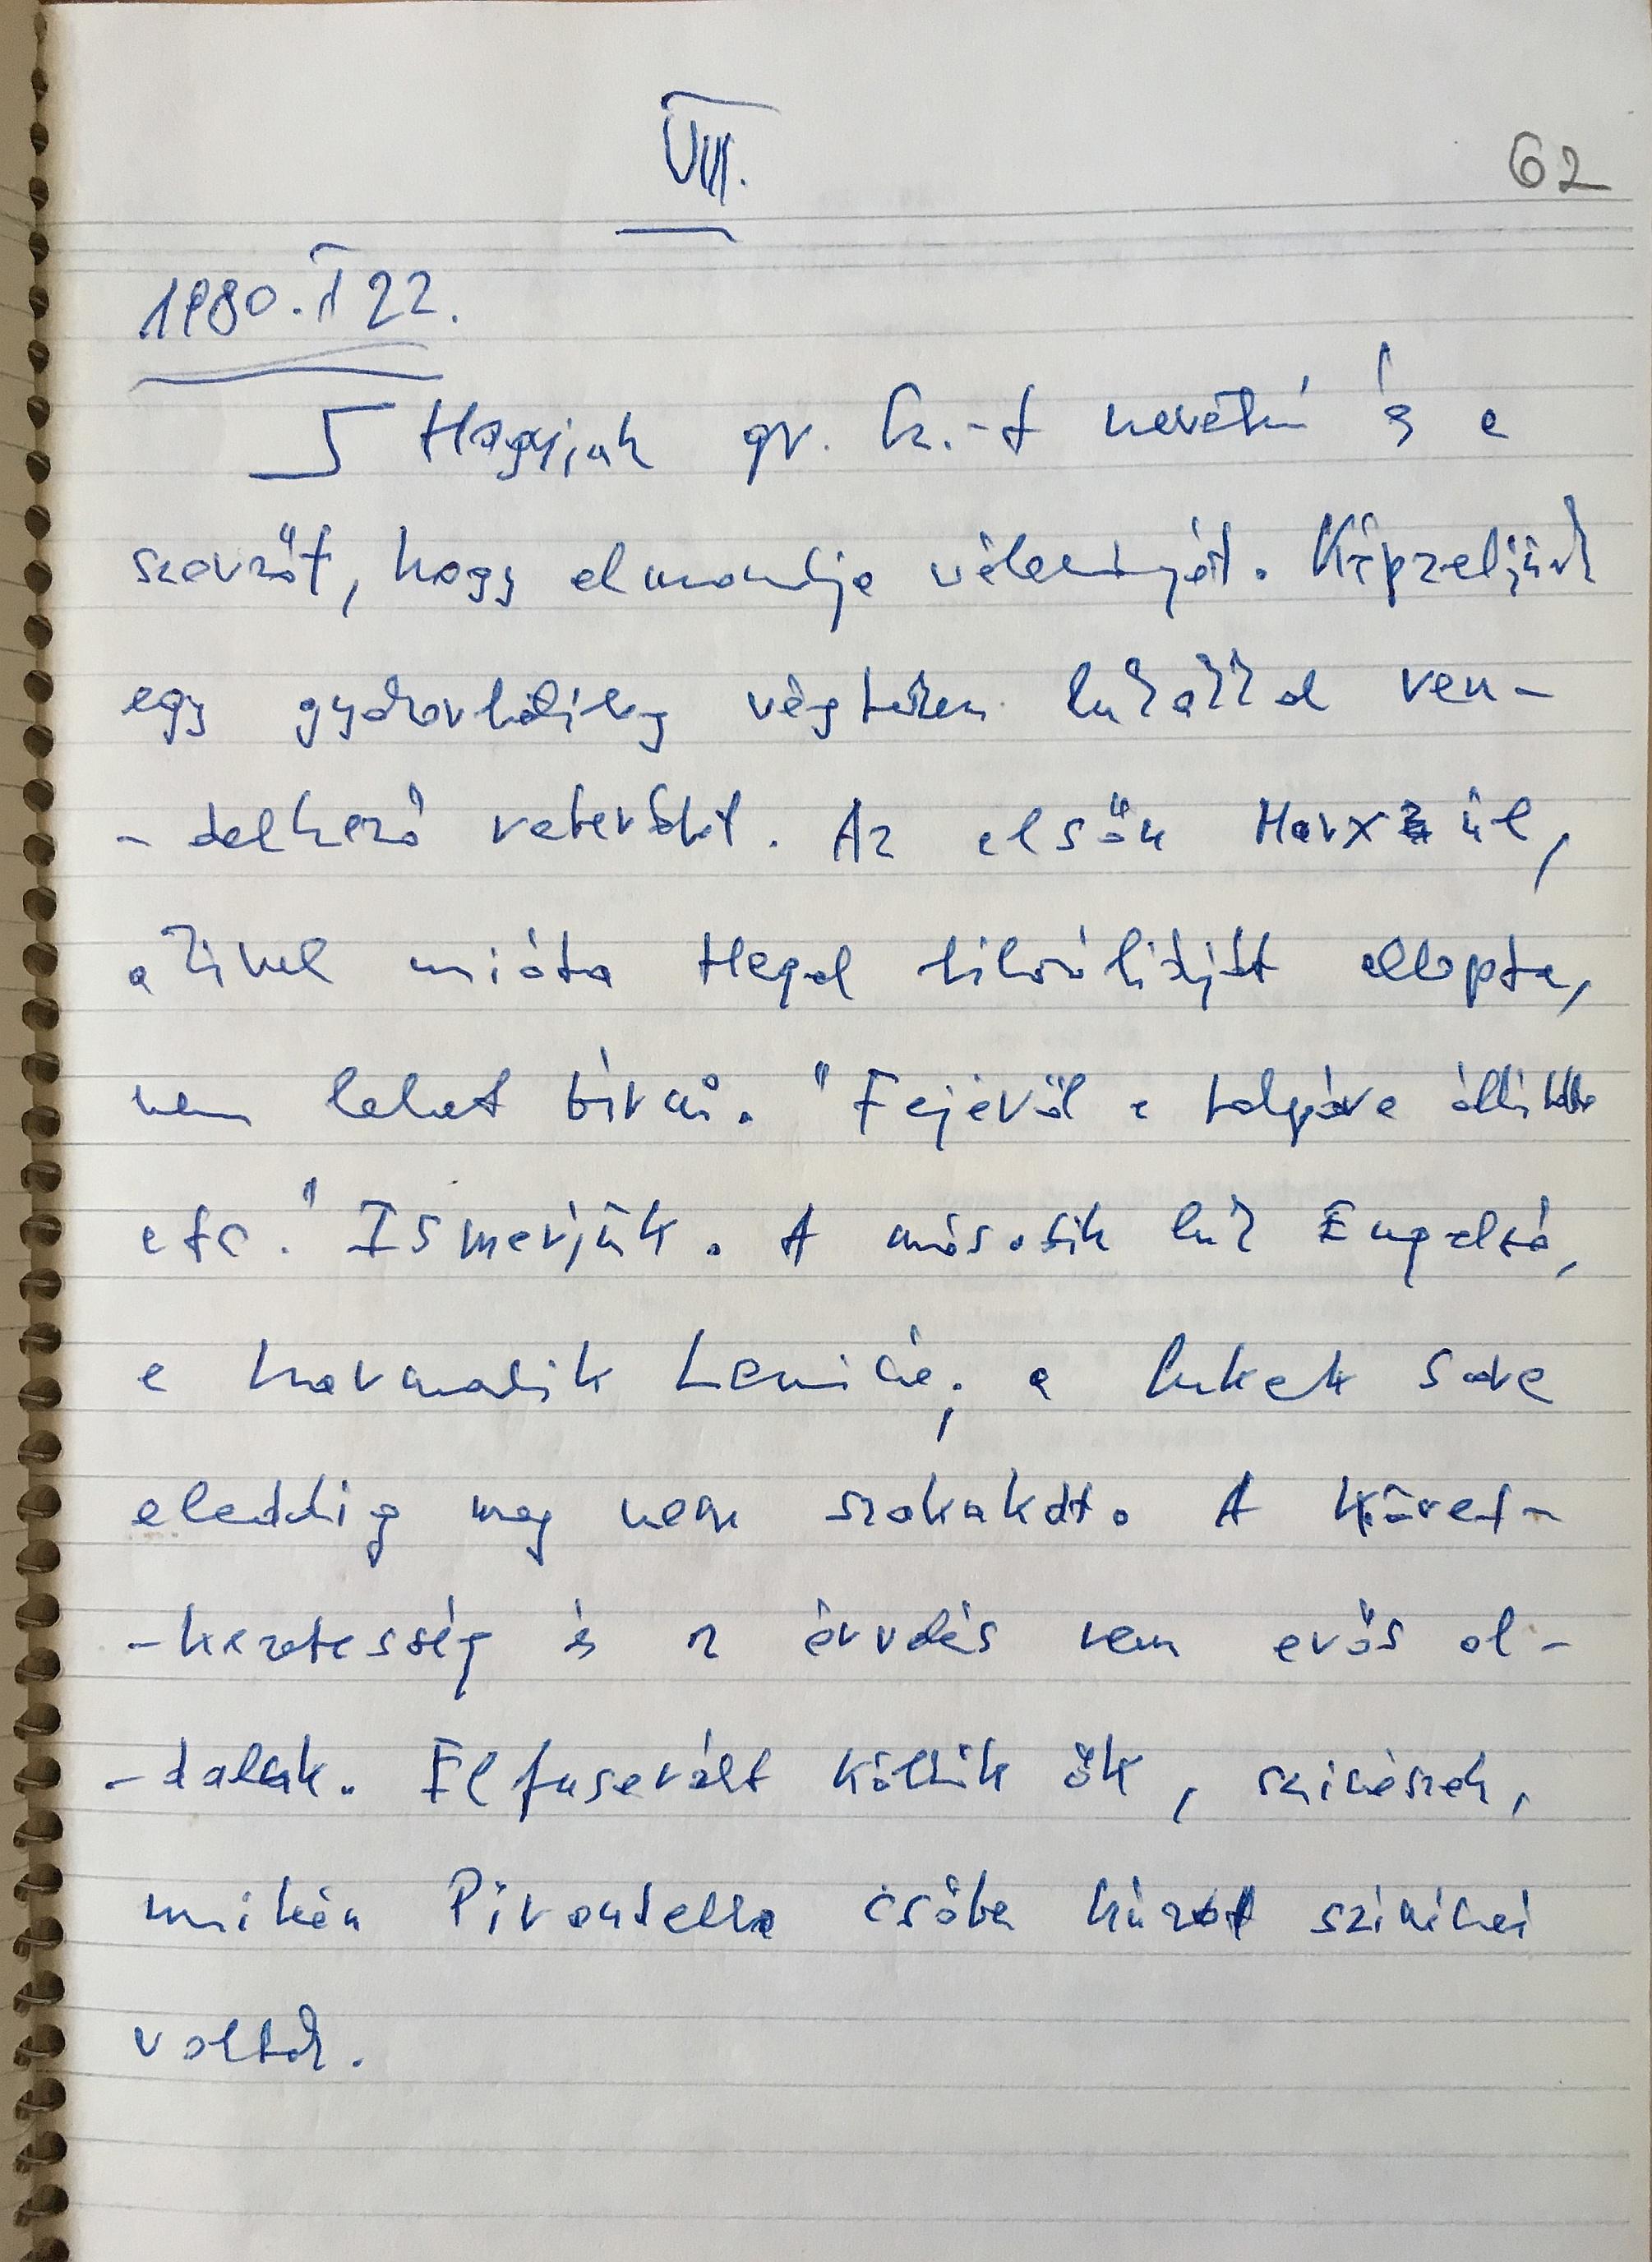 VIII.
62
1980. I 22.
Hagyjuk gr. K.-t nevetni és a
szerzőt, hogy elmondja véleményét. Képzeljünk
egy gyakorlatilag végtelen lukakkal ren-
-delkező reterátot. Az elsőn Marx ül,
akivel mióta Hegel bilijét ellopta,
nem lehet bírni. "Fejéről a talpára állította
etc." Ismerjük. A második luk Engelsé,
a harmadik Leniné; a lukak sora
eleddig meg nem szakakadt. A követ-
-kezetesség és az érvelés nem erős ol-
-daluk. Elfuserált költők ők, színészek,
miként Pirandello csőbe húzott színészei
voltak.